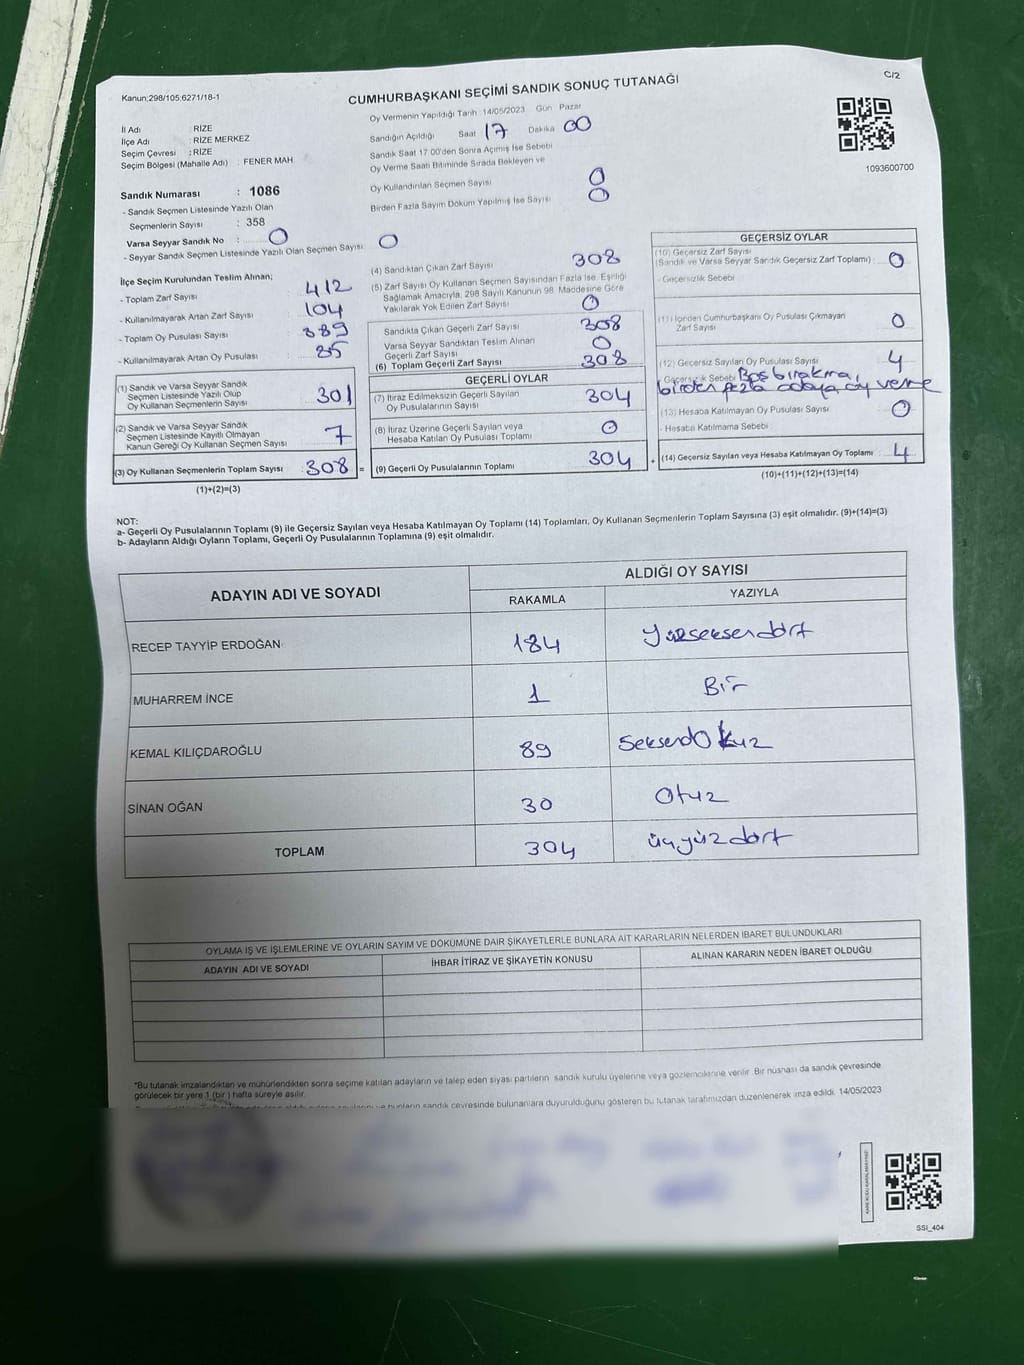 Kanun:298/105;6271/18-1
CUMHURBAŞKANI SEÇİMİ SANDIK SONUÇ TUTANAĞI
C/2
1093600700
İl Adı : RİZE
İlçe Adı : RİZE MERKEZ
Seçim Çevresi : RİZE
Seçim Bölgesi (Mahalle Adı) : FENER MAH
Sandık Numarası : 1086
- Sandık Seçmen Listesinde Yazılı Olan
Seçmenlerin Sayısı : 358
Varsa Seyyar Sandık No : 0
- Seyyar Sandık Seçmen Listesinde Yazılı Olan Seçmen Sayısı 0
Oy Vermenin Yapıldığı Tarih 14/05/2023 Gün Pazar
Sandığın Açıldığı Saat 17 Dakika 00
Sandık Saat 17:00'den Sonra Açılmış İse Sebebi
Oy Verme Saati Bitiminde Sırada Bekleyen ve
Oy Kullandırılan Seçmen Sayısı 0
Birden Fazla Sayım Döküm Yapılmış İse Sayısı 0
İlçe Seçim Kurulundan Teslim Alınan;
- Toplam Zarf Sayısı 412
- Kullanılmayarak Artan Zarf Sayısı 104
- Toplam Oy Pusulası Sayısı 389
- Kullanılmayarak Artan Oy Pusulası 85
(1) Sandık ve Varsa Seyyar Sandık
Seçmen Listesinde Yazılı Olup
Oy Kullanan Seçmenlerin Sayısı 301
(2) Sandık ve Varsa Seyyar Sandık
Seçmen Listesinde Kayıtlı Olmayan
Kanun Gereği Oy Kullanan Seçmen Sayısı 7
(3) Oy Kullanan Seçmenlerin Toplam Sayısı 308 =
(1)+(2)=(3)
(4) Sandıktan Çıkan Zarf Sayısı 308
(5) Zarf Sayısı Oy Kullanan Seçmen Sayısından Fazla İse, Eşitliği
Sağlamak Amacıyla, 298 Sayılı Kanunun 98. Maddesine Göre
Yakılarak Yok Edilen Zarf Sayısı 0
Sandıkta Çıkan Geçerli Zarf Sayısı 308
Varsa Seyyar Sandıktan Teslim Alınan
Geçerli Zarf Sayısı 0
(6) Toplam Geçerli Zarf Sayısı 308
GEÇERLİ OYLAR
(7) İtiraz Edilmeksizin Geçerli Sayılan
Oy Pusulalarının Sayısı 304
(8) İtiraz Üzerine Geçerli Sayılan veya
Hesaba Katılan Oy Pusulası Toplamı 0
(9) Geçerli Oy Pusulalarının Toplamı 304 +
GEÇERSİZ OYLAR
(10) Geçersiz Zarf Sayısı
(Sandık ve Varsa Seyyar Sandık Geçersiz Zarf Toplamı) : 0
- Geçersizlik Sebebi
(11) İçinden Cumhurbaşkanı Oy Pusulası Çıkmayan
Zarf Sayısı 0
(12) Geçersiz Sayılan Oy Pusulası Sayısı 4
- Geçersizlik Sebebi Boş bırakma,
birden fazla adaya oy verme
(13) Hesaba Katılmayan Oy Pusulası Sayısı 0
- Hesaba Katılmama Sebebi
(14) Geçersiz Sayılan veya Hesaba Katılmayan Oy Toplamı 4
(10)+(11)+(12)+(13)=(14)
NOT:
a- Geçerli Oy Pusulalarının Toplamı (9) ile Geçersiz Sayılan veya Hesaba Katılmayan Oy Toplamı (14) Toplamları, Oy Kullanan Seçmenlerin Toplam Sayısına (3) eşit olmalıdır. (9)+(14)=(3)
b- Adayların Aldığı Oyların Toplamı, Geçerli Oy Pusulalarının Toplamına (9) eşit olmalıdır.
ADAYIN ADI VE SOYADI
ALDIĞI OY SAYISI
RAKAMLA YAZIYLA
RECEP TAYYİP ERDOĞAN 184 Yüzseksendört
MUHARREM İNCE 1 Bir
KEMAL KILIÇDAROĞLU 89 Seksendokuz
SİNAN OĞAN 30 Otuz
TOPLAM 304 üçyüzdört
OYLAMA İŞ VE İŞLEMLERİNE VE OYLARIN SAYIM VE DÖKÜMÜNE DAİR ŞİKAYETLERLE BUNLARA AİT KARARLARIN NELERDEN İBARET BULUNDUKLARI
ADAYIN ADI VE SOYADI İHBAR İTİRAZ VE ŞİKAYETİN KONUSU ALINAN KARARIN NEDEN İBARET OLDUĞU
*Bu tutanak imzalandıktan ve mühürlendikten sonra seçime katılan adayların ve talep eden siyasi partilerin sandık kurulu üyelerine veya gözlemcilerine verilir. Bir nüshası da sandık çevresinde
görülecek bir yere 1 (bir) hafta süreyle asılır.
bunların sandık çevresinde bulunanlara duyurulduğunu gösteren bu tutanak tarafımızdan düzenlenerek imza edildi. 14/05/2023
SSI_404